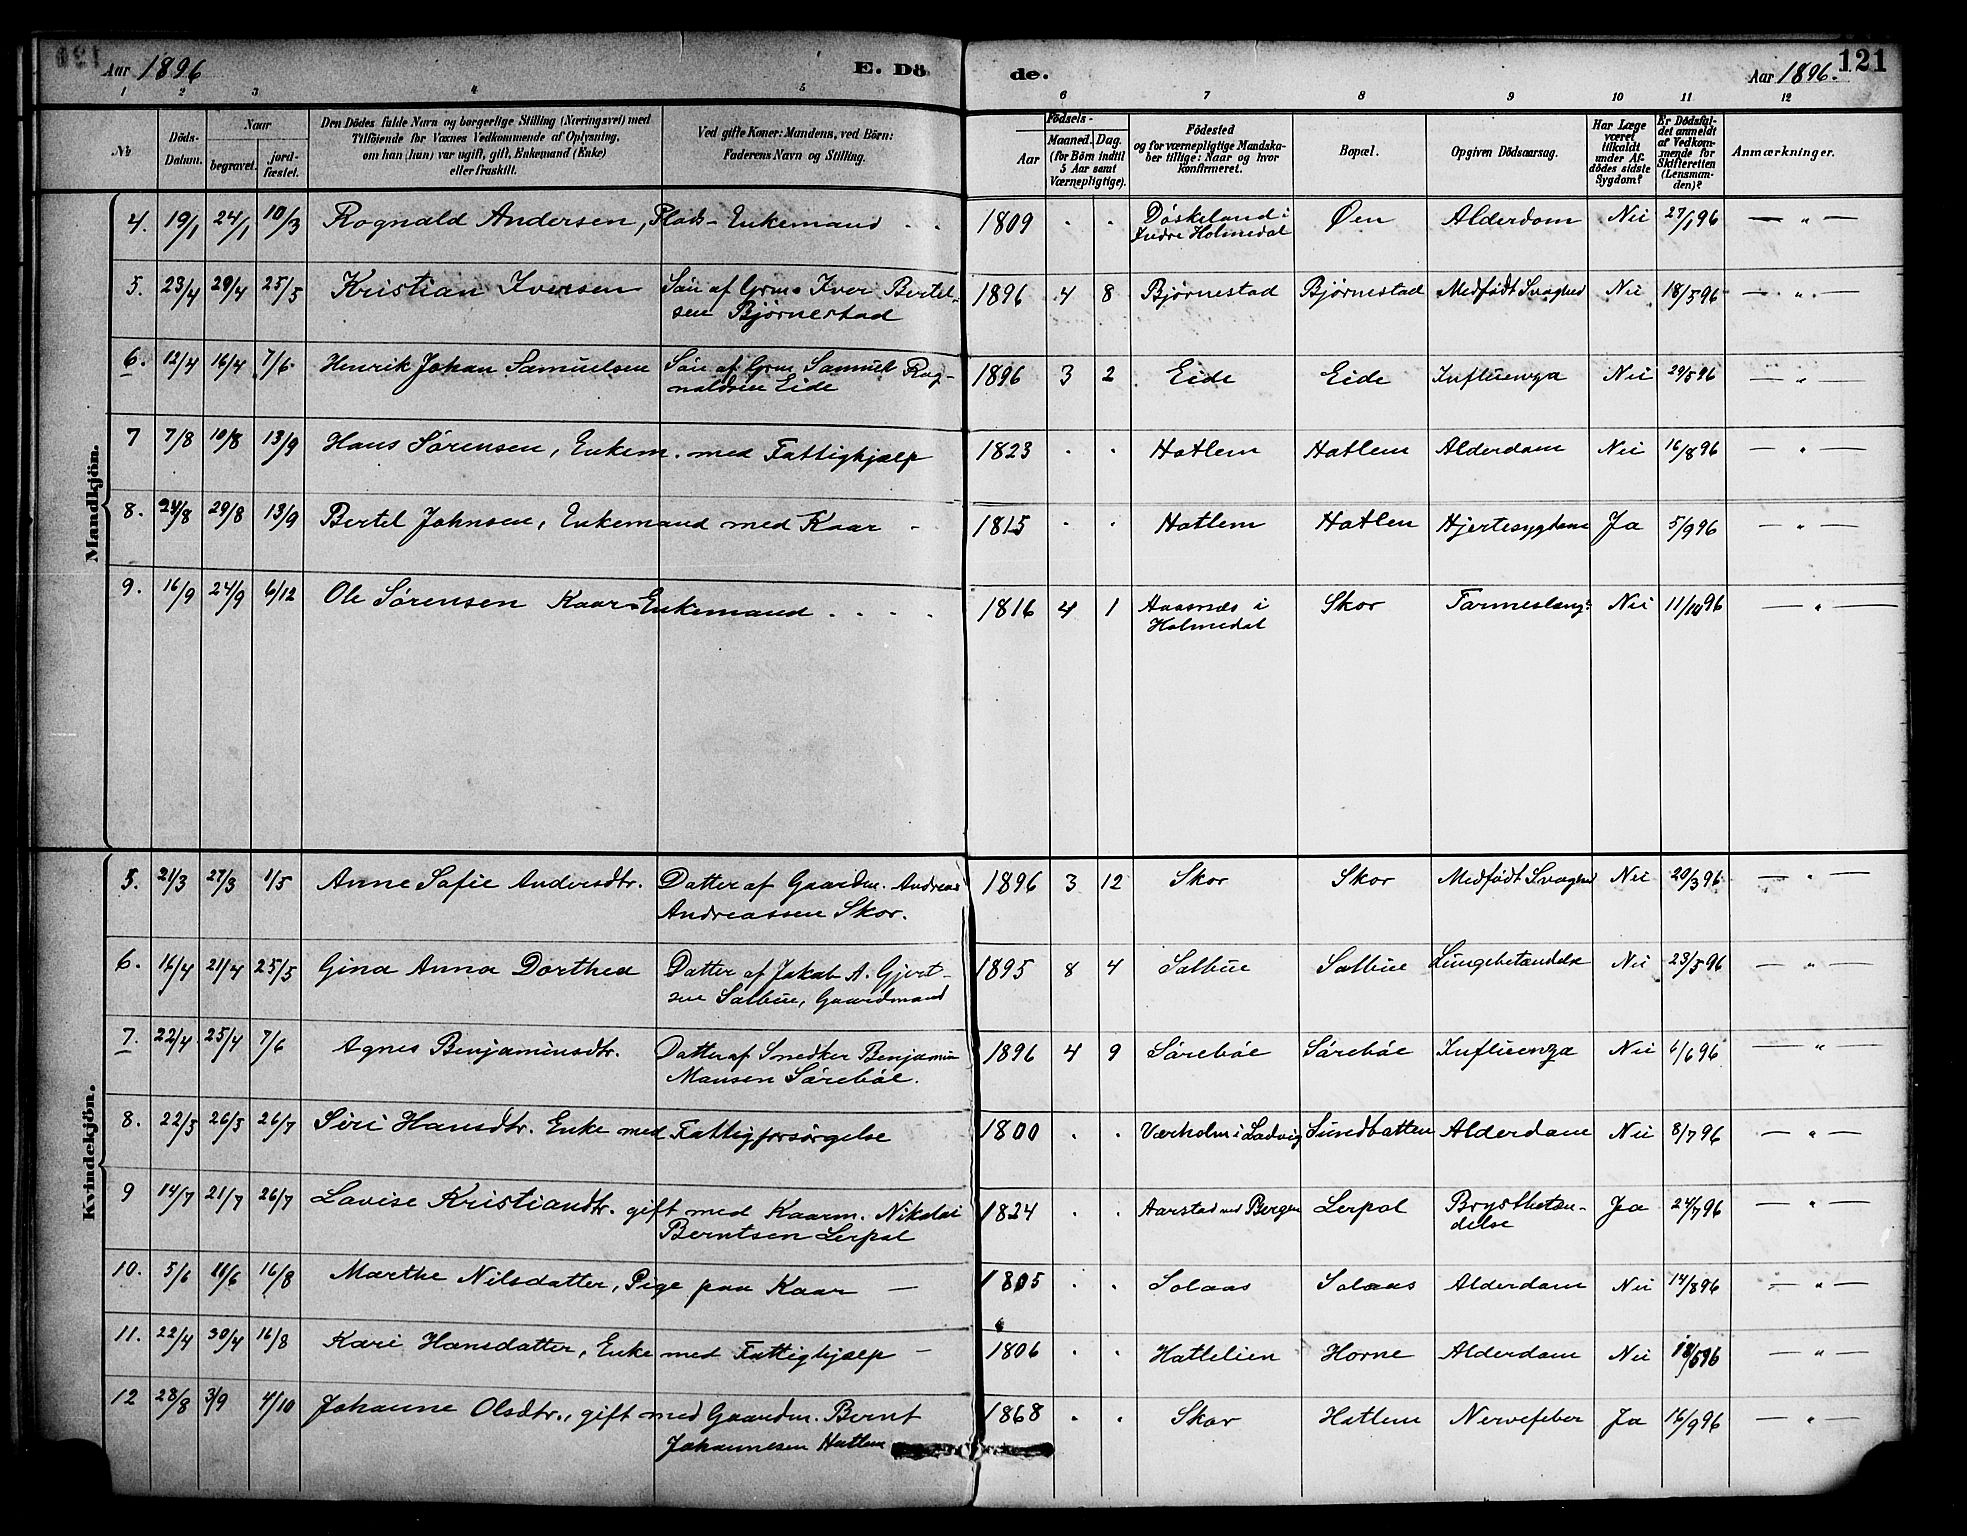 Aar 1896
E. Dö
de.
Aar 1896.
121
1 2 3 4 5 6 7 8 9 10 11 12
№
Döds-
Datum.
Naar
begravet.
jord-
fæstet.
Den Dödes fulde Navn og borgerlige Stilling (Næringsvei) med
Tilföiende for Voxnes Vedkommende af Oplysning,
om han (hun) var ugift, gift, Enkemand (Enke)
eller fraskilt.
Ved gifte Koner: Mandens, ved Börn:
Faderens Navn og Stilling.
Födsels-
Aar
Maaned.
Dag.
(for Børn indtil
5 Aar samt
Værnepligtige).
Födested
og for værnepligtige Mandska-
ber tillige: Naar og hvor
konfirmeret.
Bopæl.
Opgiven Dödsaarsag.
Har Læge
været
tilkaldt
under Af-
dödes sidste
Sygdom?
Er Dödsfal-
det anmeldt
af Vedkom-
mende for
Skifteretten
(Lensman-
den)?
Anmærkninger.
Mandkjön.
4. 19/1 24/1 10/3 Rognald Andersen, Plads-Enkemand . . 1809 . . Döskeland i Øen Alderdom Nei 27/1 96 — " —
Indre Holmedal
5. 23/4 29/4 25/5 Kristian Iversen Sön af Grm. Iver Bertel- 1896 4 8 Bjørnestad Bjørnestad Medfödt Svaghed Nei 18/5 96 — " —
sen Bjørnestad
6. 12/4 16/4 7/6 Henrik Johan Samuelsen Sön af Grm. Samuel Rag- 1896 3 2 Eide Eide Influenza Nei 29/5 96 — " —
naldsen Eide
7 7/8 10/8 13/9 Hans Sørensen, Enkem. med Fattighjælp 1823 . . Hatlem Hatlem Alderdom Nei 16/8 96 — " —
8. 24/8 29/8 13/9 Bertel Johnsen, Enkemand med Kaar - 1815 . . Hatlem Hatlem Hjertesygdom Ja 5/9 96 — " —
9. 16/9 24/9 6/12 Ole Sørensen Kaar-Enkemand . . . . 1816 4 1 Aasnæs i Skor Tarmeslyng: Nei 11/10 96 — " —
Holmedal
Kvindekjön.
5. 21/3 27/3 1/5 Anne Sofie Andersdtr. Datter af Gaardm. Andreas 1896 3 12 Skor Skor Medfödt Svaghed Nei 20/3 96 — " —
Andreassen Skor.
6. 16/4 21/4 25/5 Gina Anna Dorthea Datter af Jakob A. Gjert- 1895 8 4 Salbue Salbue Lungebetændelse Nei 23/5 96 — " —
sen Salbue, Gaardmand
7. 22/4 25/4 7/6 Agnes Benjaminsdtr. Datter af Snedker Benjamin 1896 4 9 Sørebøe Sørebøe Influenza Nei 6/6 96 — " —
Monsen Sørebøe.
8. 22/3 26/3 26/7 Siri Hansdtr. Enke med Fattigforsörgelse 1800 . . Værholm i Ladvig Sundbotten Alderdom Nei 8/7 96 — " —
9 14/7 21/7 26/7 Lovise Kristiandtr. gift med Kaarm. Nikolai 1824 . . Aarstad ved Bergen Lerpol Brystbetæn- Ja 24/7 96 — " —
Berntsen Lerpol delse
10. 5/6 11/6 16/8 Marthe Nilsdatter, Pige paa Kaar — 1805 . . Solaas Solaas Alderdom Nei 14/8 96 — " —
11. 22/4 30/4 16/8 Kari Hansdatter, Enke med Fattighjælp — 1806 . . Hattelien Horne Alderdom Nei 18/5 96 — " —
12 28/8 3/9 4/10 Johanne Olsdtr., gift med Gaardm. Bernt 1868 . . Skor Hatlem Nervefeber Ja 16/9 96 — " —
Johannesen Hatlem